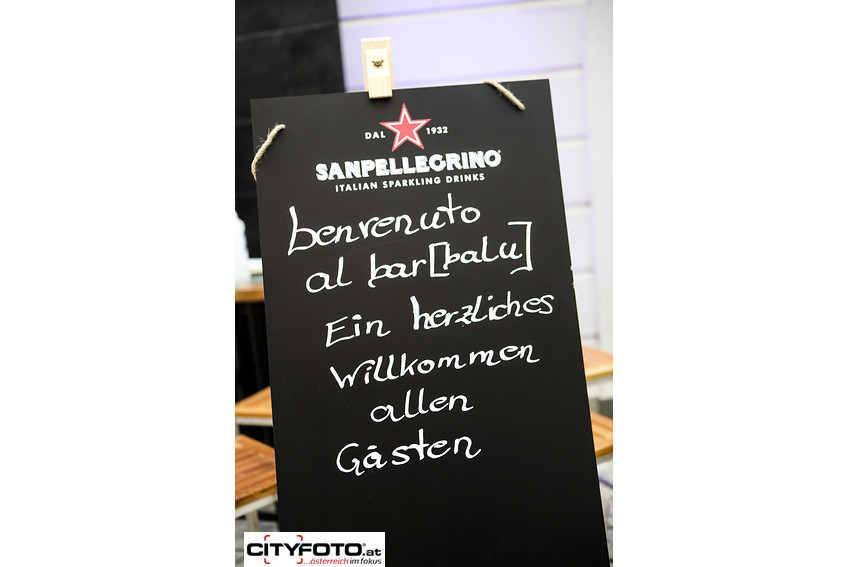 DAL 1932
SANPELLEGRINO®
ITALIAN SPARKLING DRINKS
benvenuto
al bar[balu]
Ein herzliches
Willkommen
allen
Gästen
CITYFOTO®.at
...österreich im fokus